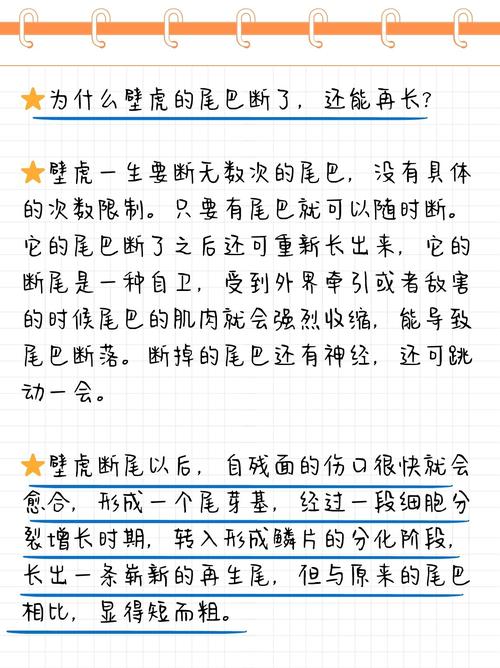 为什么壁虎的尾巴断了，还能再长？
壁虎一生要断无数次的尾巴，没有具体
的次数限制。只要有尾巴就可以随时断。
它的尾巴断了之后还可重新长出来，它的
断尾是一种自卫，受到外界牵引或者敌害
的时候尾巴的肌肉就会强烈收缩，能导致
尾巴断落。断掉的尾巴还有神经，还可跳
动一会。
壁虎断尾以后，自残面的伤口很快就会
愈合，形成一个尾芽基，经过一段细胞分
裂增长时期，转入形成鳞片的分化阶段，
长出一条崭新的再生尾，但与原来的尾巴
相比，显得短而粗。